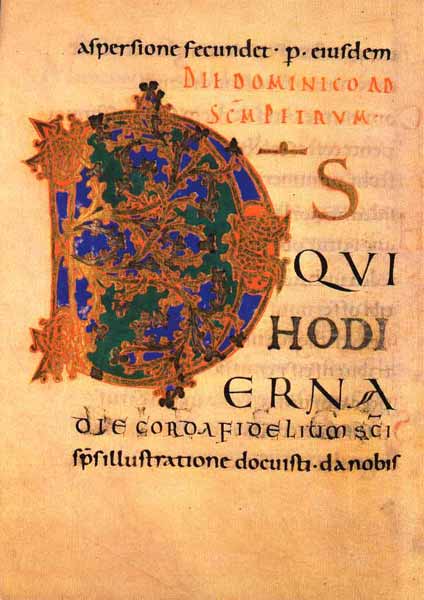 aspersione fecundet · p · eiusdem
DIE DOMINICO AD
SCM PETRVM ·
DS
QVI
HODI
ERNA
DIE CORDA FIDELIUM SCI
sps illustratione docuisti · da nobis